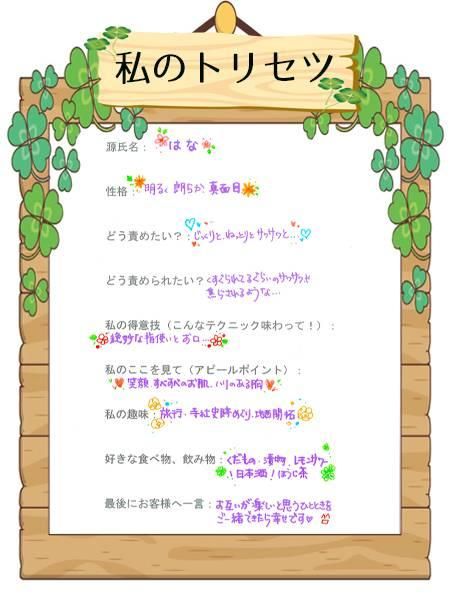 私のトリセツ
源氏名： はな
性格： 明るく 朗らか 真面目
どう責めたい？： じっくりと、ねっとりと サワサワと…
どう責められたい？ くすぐられてるくらいのサワサワで
焦らされるような…
私の得意技（こんなテクニック味わって！）：
絶妙な指使いとお口…
私のここを見て（アピールポイント）：
笑顔、すべすべのお肌、ハリのある胸
私の趣味： 旅行、寺社史跡めぐり、地酒開拓
好きな食べ物、飲み物： くだもの、漬物、レモンサワー
、日本酒！ほうじ茶
最後にお客様へ一言： お互いが楽しいと思うひとときを
ご一緒できたら幸せです